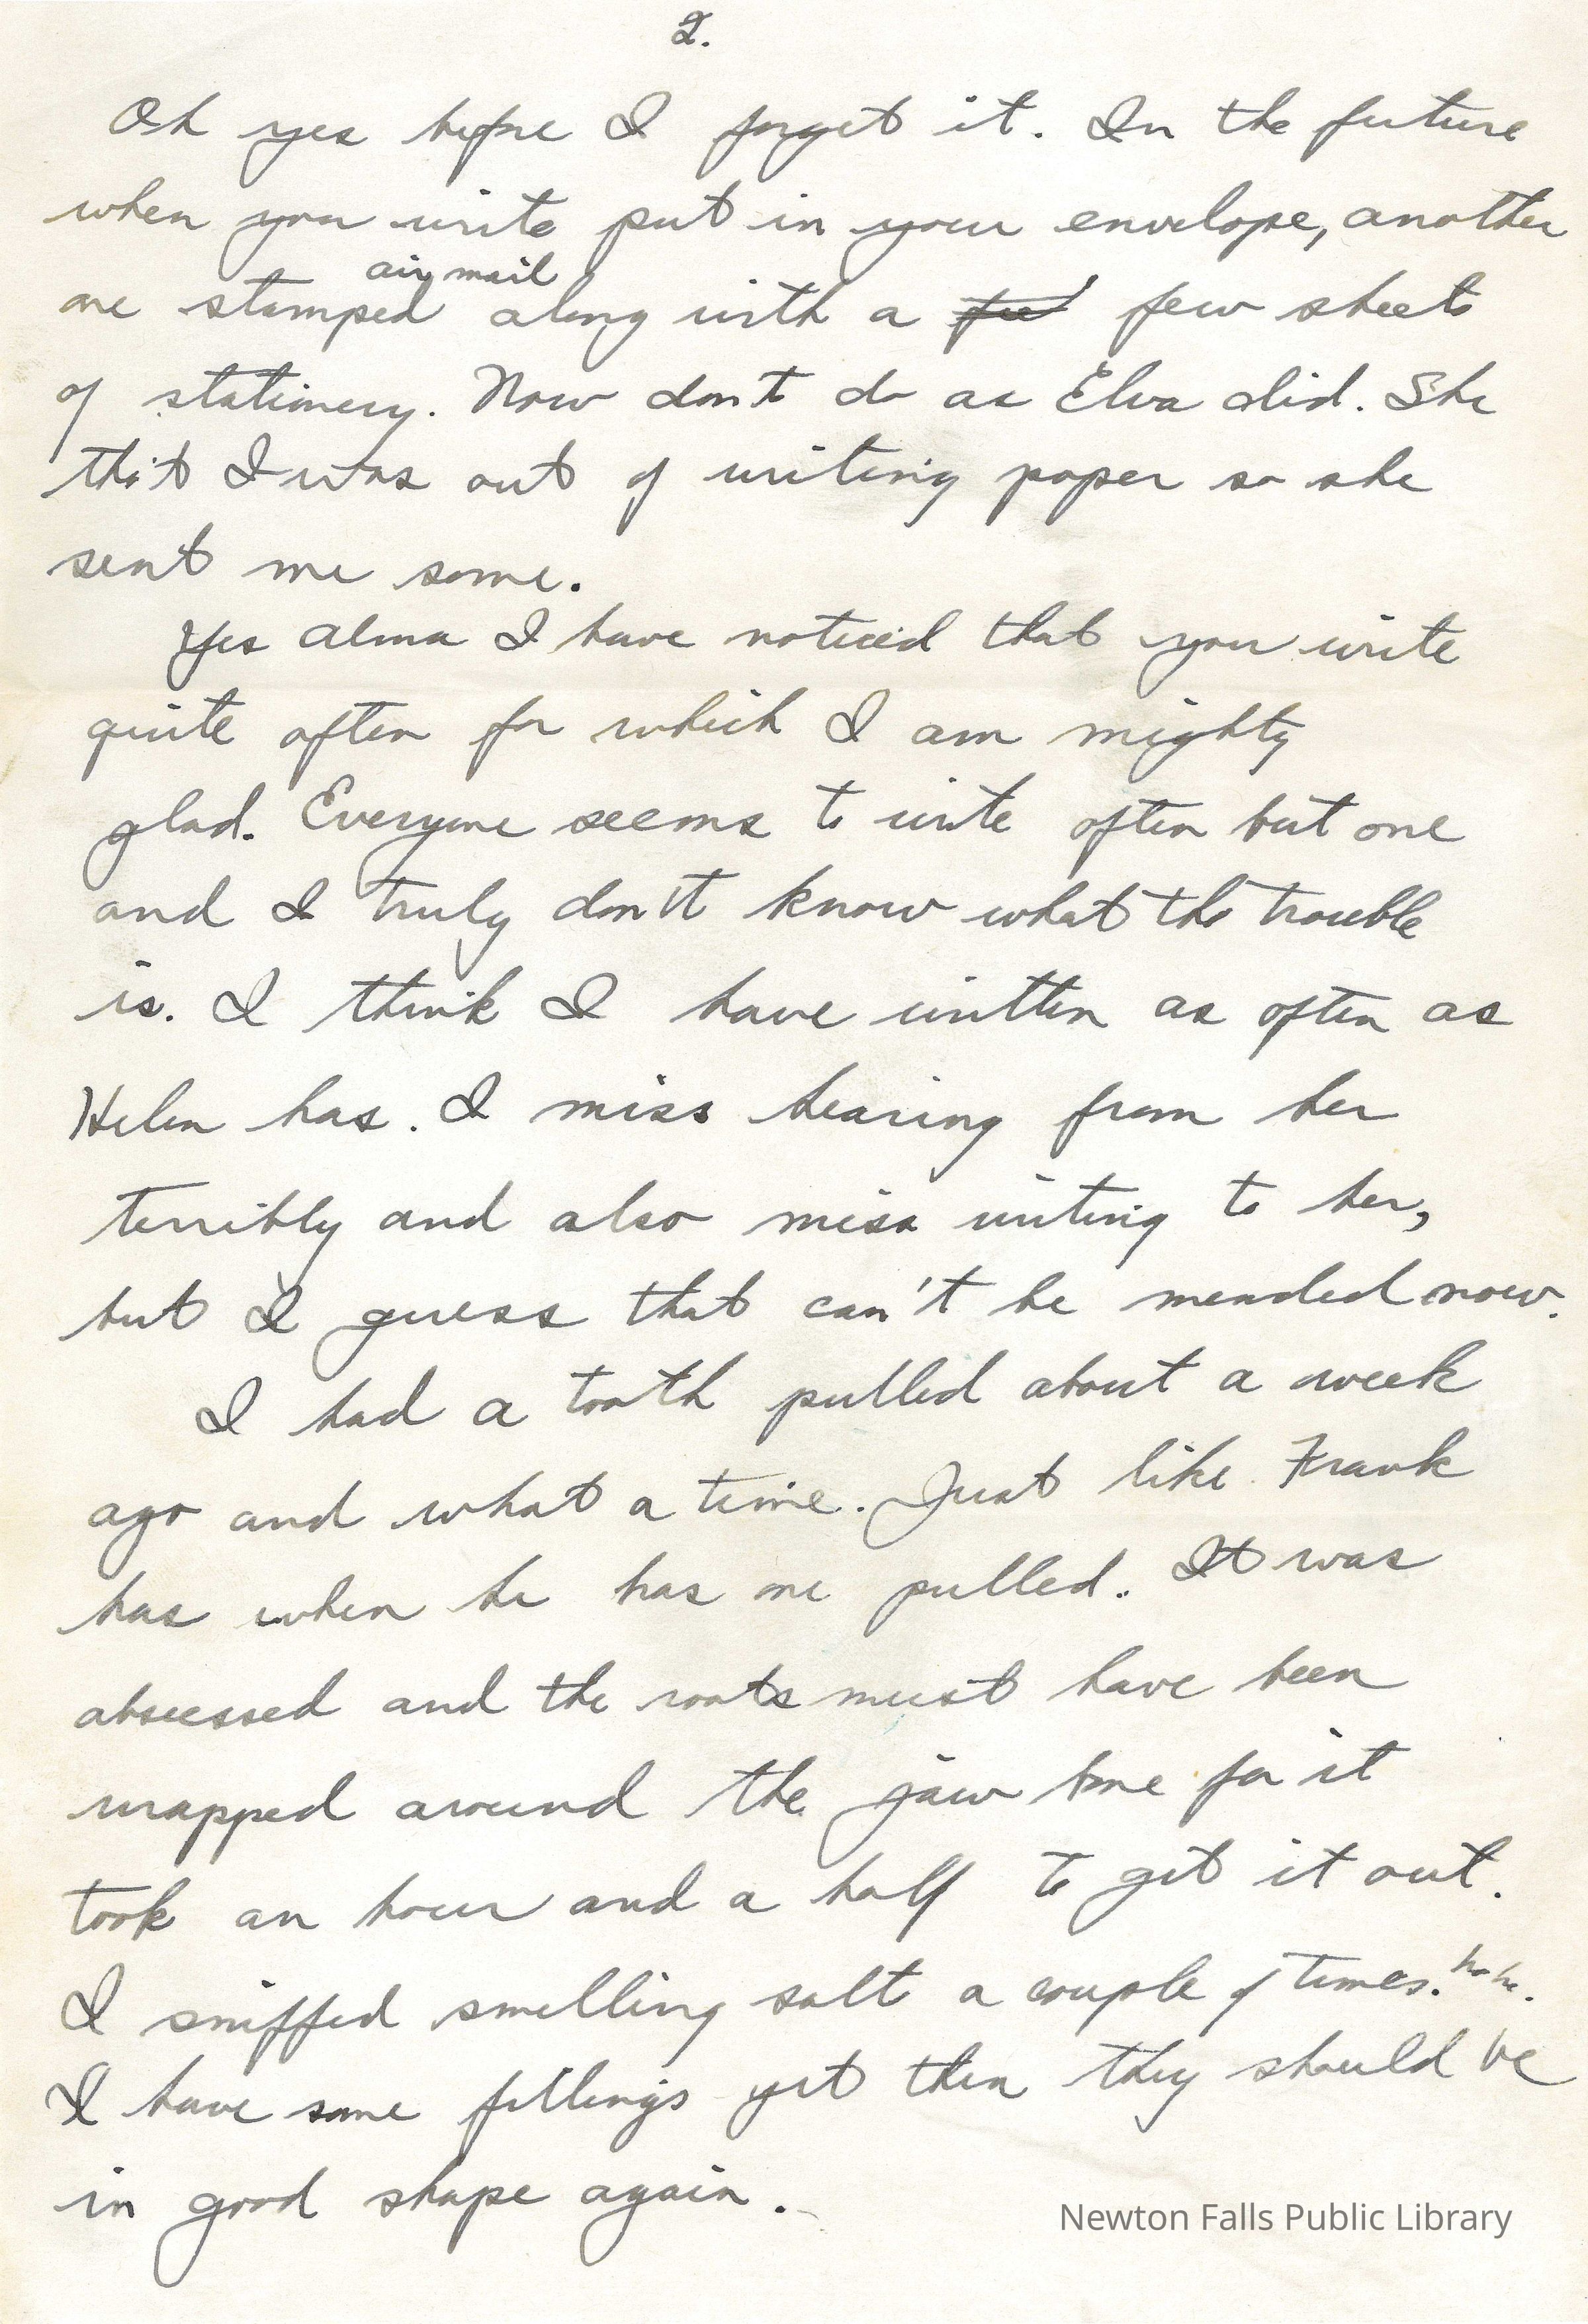 2.
Oh yes before I forget it. In the future
when you write put in your envelope, another
air mail
one stamped along with a few sheets
of stationery. Now don't do as Elva did. She
tho't I was out of writing paper so she
sent me some.
Yes Alma I have noticed that you write
quite often for which I am mighty
glad. Everyone seems to write often but one
and I truly don't know what the trouble
is. I think I have written as often as
Helen has. I miss hearing from her
terribly and also miss writing to her,
but I guess that can't be mended now.
I had a tooth pulled about a week
ago and what a time. Just like Frank
has when he has one pulled. It was
abscessed and the roots must have been
wrapped around the jaw bone for it
took an hour and a half to get it out.
I sniffed smelling salt a couple of times. ha ha.
I have some fillings yet then they should be
in good shape again.
Newton Falls Public Library